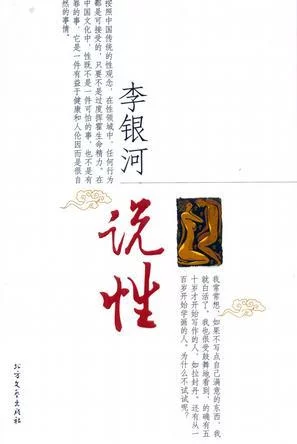 李银河
说性
按照中国传统的性观念，在性领域中，任何行为
都是可接受的，只要不是过度挥霍生命精力。在
中国文化中，性既不是一件可怕的事，也不是有
害的事，它是一件有益于健康和人伦因而是很自
然的事情。
我常常想，如果不写点自己满意的东西，我
就白活了。我也很受鼓舞地看到，的确有五
十岁才开始写作的人，如拉封丹。还有从一
百岁开始学画的人。为什么不试试呢？
北方文艺出版社